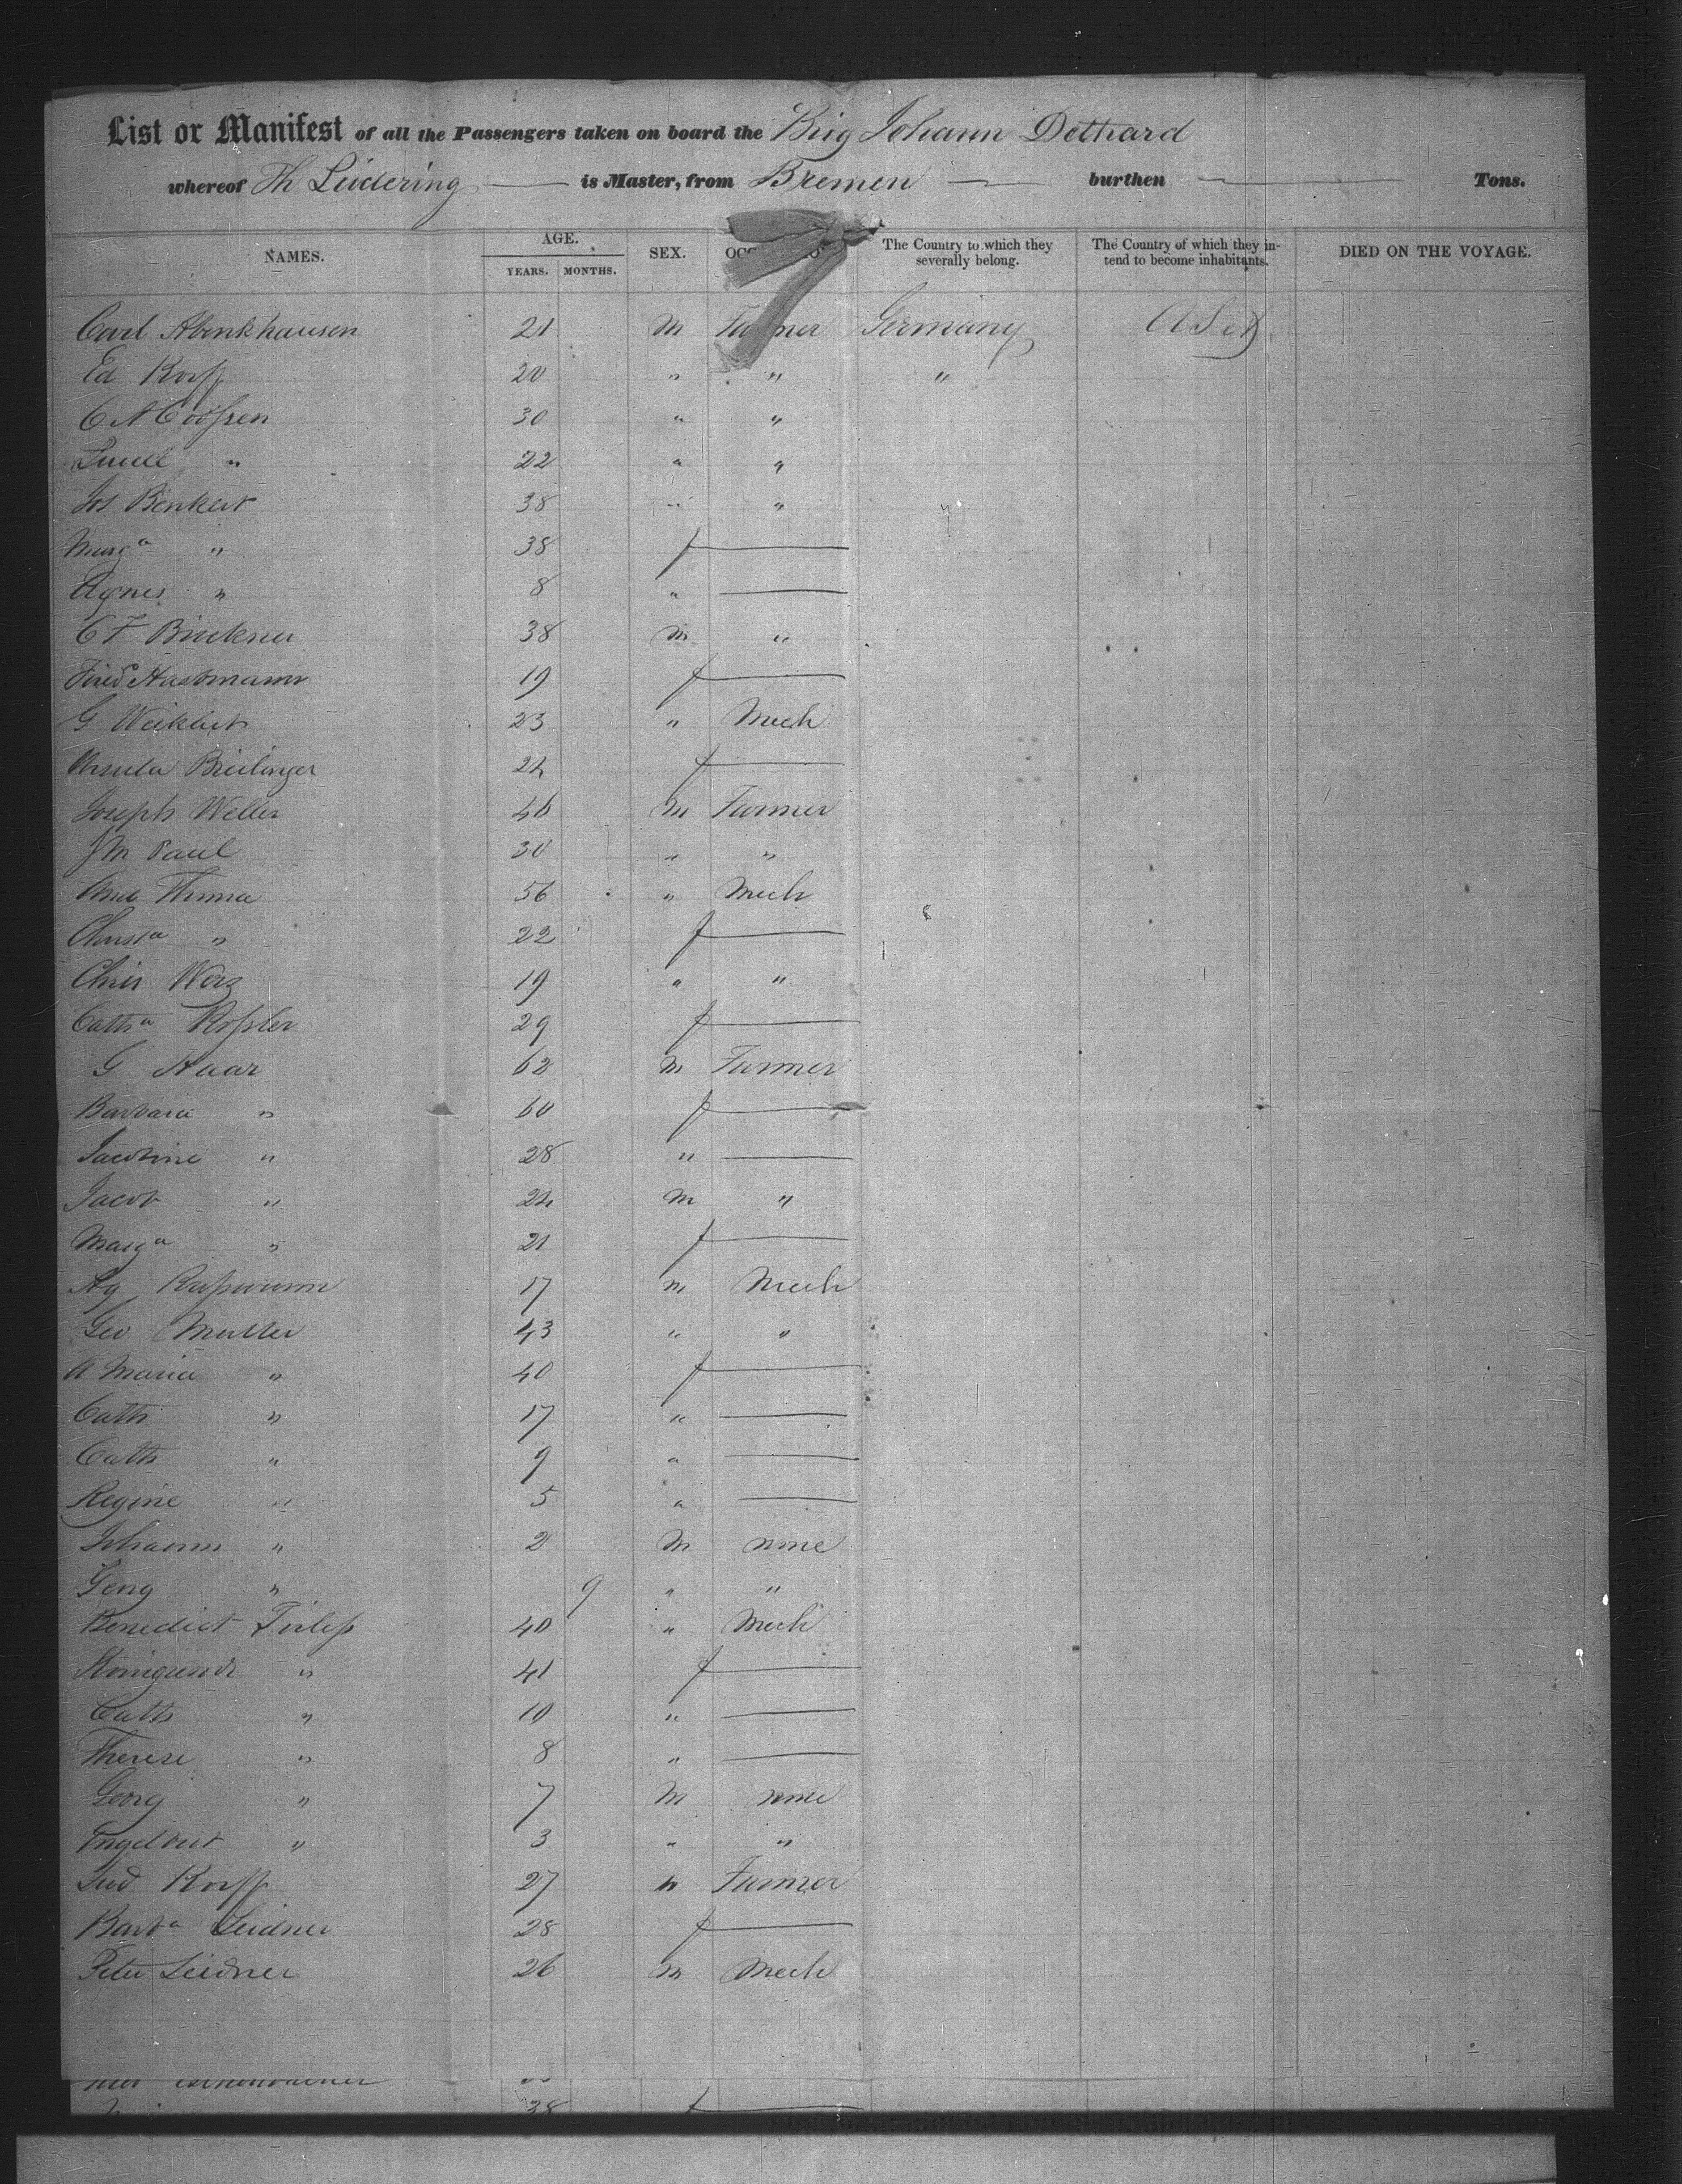 List or Manifest of all the Passengers taken on board the Brig Johann Dethard
whereof Th Leidering is Master, from Bremen burthen Tons.
NAMES. AGE. YEARS. MONTHS. SEX. The Country to which they severally belong. The Country of which they intend to become inhabitants. DIED ON THE VOYAGE.
Carl Abenkhausen 21 M Farmer Germany U S A
Ed Korff 20 " " "
C A Coossen 30 " "
" 22 " "
Jos Benkert 38 " " "
Marga " 38 f
Agnes " 8 "
C F 38 M "
Hastmann 19 f
G Weikert 23 " Mech
Ursula Breilinger 24 f
Joseph Weller 46 M Farmer
J M Paul 30 " "
And Thoma 56 " Mech
Christa " 22 f
Chris Worz 19 " "
Catha Rossler 29 f
G Haar 62 M Farmer
Barbara " 60 f
Jacobine " 28 "
Jacob " 24 M "
Marga " 21 f
Ag Russwurm 17 M Mech
Geo Muller 43 " "
A Maria " 40 f
Cath " 17 "
Cath " 9 "
Regine " 5 "
Johann " 2 M none
Georg " 9 " "
Benedict 40 " Mech
" 41 f
Cath " 10 "
Therese " 8 "
Georg " 7 M none
Engelbert " 3 " "
Lud Korff 27 " Farmer
Barba Leidner 28 f
Peter Leidner 26 M Mech
38 f